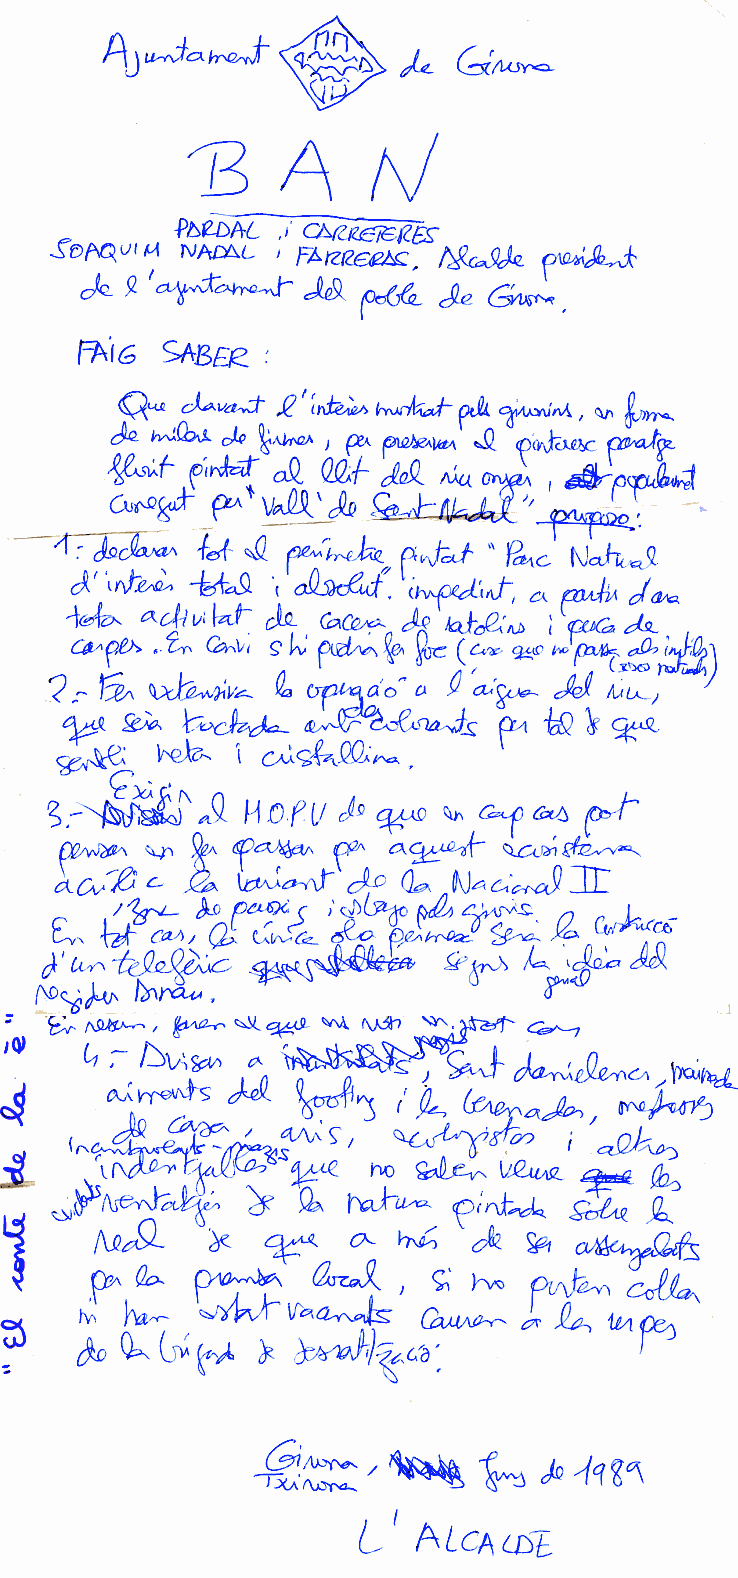 Ajuntament de Girona
BAN
PARDAL i CARRETERES
JOAQUIM NADAL i FARRERAS, Alcalde president
de l'ajuntament del poble de Girona.
FAIG SABER:
Que davant l'interès mostrat pels gironins, en forma
de milers de firmes, per preservar el pintoresc paratge
florit pintat al llit del riu onyar, popularment
conegut per "Vall de Sant Nadal" proposo:
1:- declarar tot el perímetre pintat "Parc Natural
d'interès total i absolut". impedint, a partir d'ara
tota activitat de cacera de ratolins i pesca de
carpes. En canvi s'hi podrà fer foc (cosa que no passa als inútils
2.- Fer extensiva la operació a l'aigua del riu,
que serà tractada amb colorants per tal de que
sembli neta i cristallina.
Exigir
3.- al M.O.P.U de que en cap cas pot
pensar en fer passar per aquest ecosistema
acrílic la variant de la Nacional II
zona de passeig i esbarjo pels gironins.
En tot cas, la única obra permesa serà la construcció
d'un telefèric segons la idea del
genial
regidor Arnau.
En resum, farem el que
4.- Avisar a , Sant danielencs,
aiments del footing i les berenades, mestresses
de casa, avis, ecologistes i altres
indentjalles que no saben veure les
ventatjes de la natura pintada sobre la
real de que a més de ser assenyalats
per la premsa local, si no porten collar
ni han estat vacunats cauran a les urpes
de la brigada de desratització.
Girona, Juny de 1989
Txirona
L'ALCALDE
"El conte de la è"